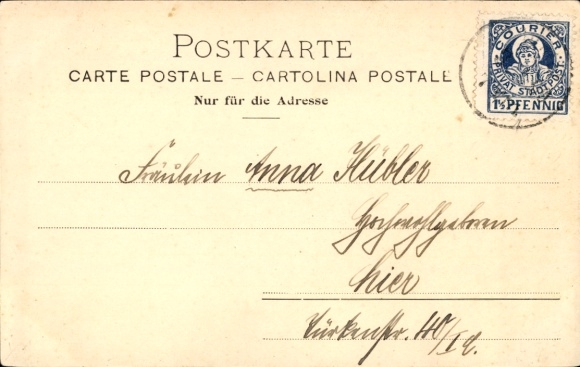 POSTKARTE
CARTE POSTALE — CARTOLINA POSTALE
Nur für die Adresse
COURIER
PRIVAT STADTPOST
1½ PFENNIG
Fräulein Anna Hübler
Hochwohlgeboren
hier
Türkenstr. 40/I